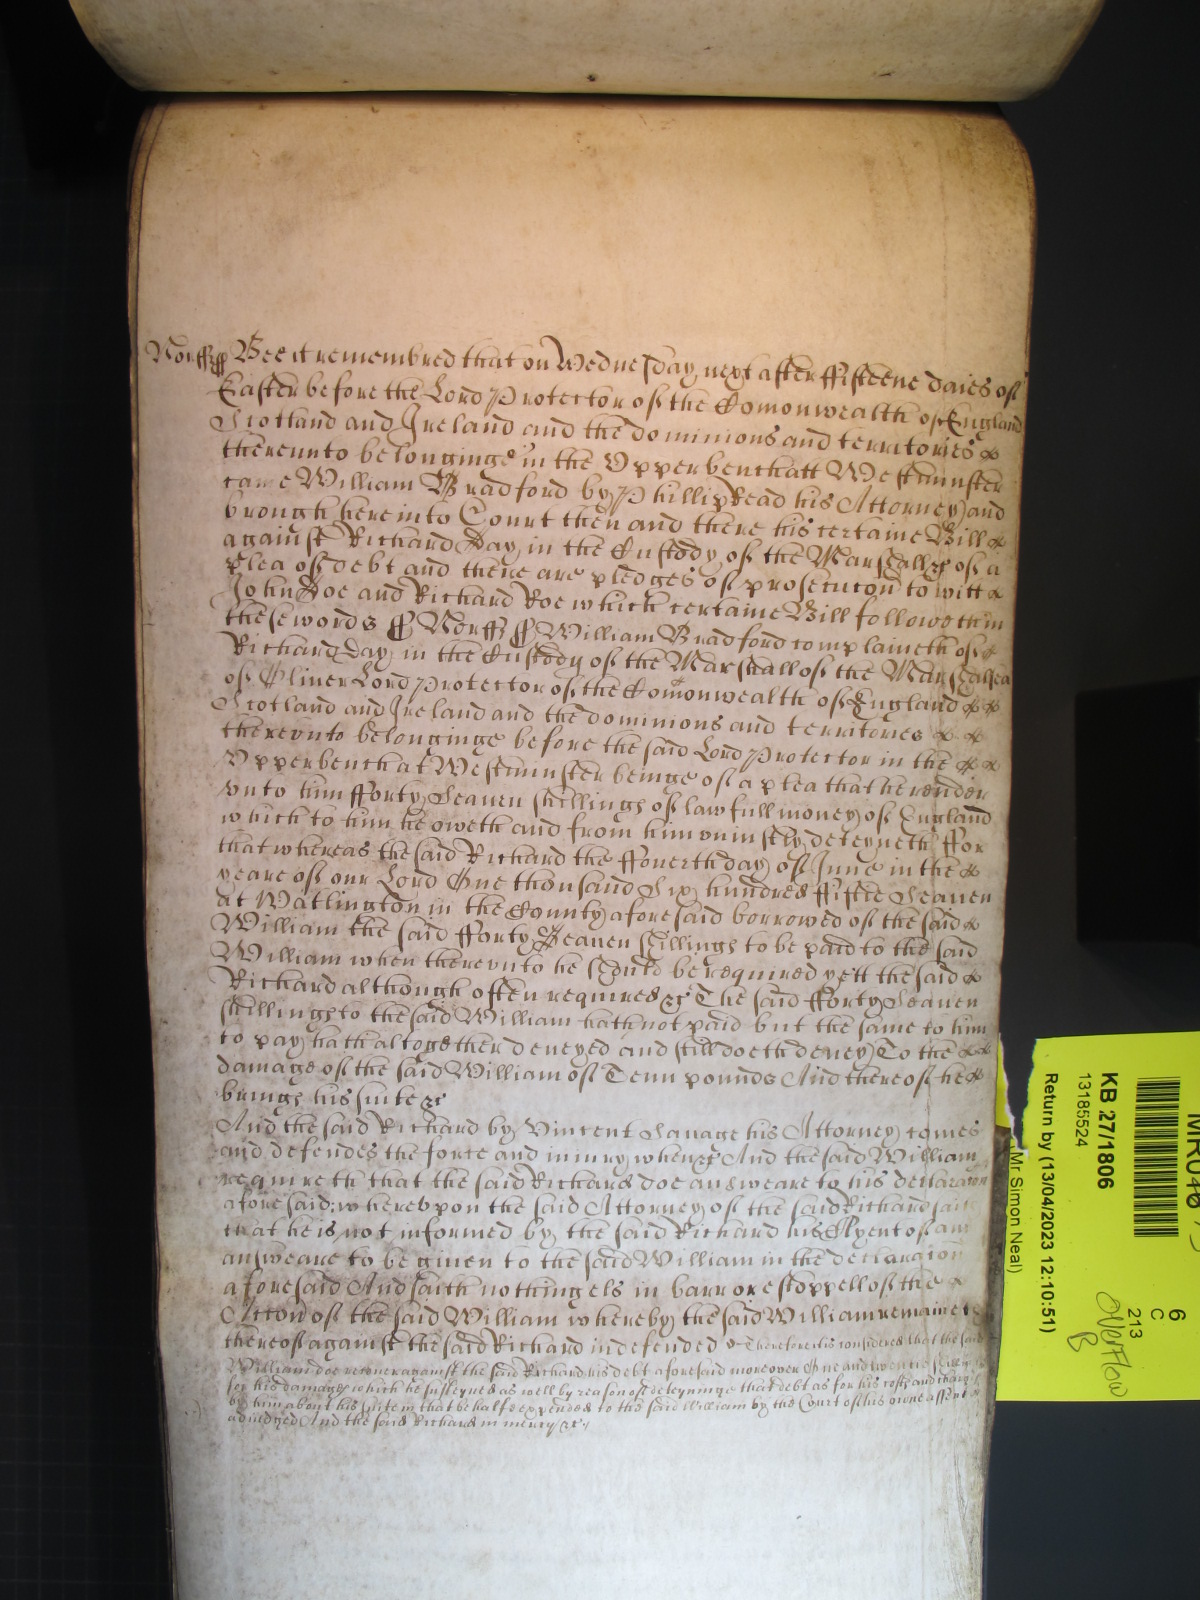 Norff ss Bee it remembred that on Wednesday next after ffifteene daies of
Easter before the Lord Protector of the Comonwealth of England
Scotland and Ireland and the dominions and territories
therevnto belonginge in the Vpper bench att Westminster
came William Bradford by Phillip Read his Attorney and
brough here into Court then and there his certaine Bill
against Richard Day in the Custody of the Marshall &c of a
plea of debt and there are pledges of prosecucon to witt
John Doe and Richard Roe which certaine Bill followeth in
these words ss Norff ss William Bradford complaineth of
Richard Day in the Custody of the Marshall of the Marshalsea
of Oliver Lord Protector of the Comonwealth of England
Scotland and Ireland and the dominions and territories
therevnto belonginge before the said Lord Protector in the
Vpper bench at Westminster beinge of a plea that he render
vnto him fforty Seaven shillings of lawfull money of England
which to him he oweth and from him vniustly deteyneth ffor
that whereas the said Richard the ffouerth day of June in the
yeare of our Lord One thousand Six hundred ffiftie Seaven
at Watlington in the County aforesaid borrowed of the said
William the said fforty Seaven shillings to be paid to the said
William when therevnto he should be required yett the said
Richard although often required &c The said fforty Seaven
shillings to the said William hath not paid but the same to him
to pay hath altogether deneyed and still doeth deney To the
damage of the said William of Tenn pounds And thereof he
brings his suite &c
And the said Richard by Vincent Savage his Attorney comes
and defendes the force and iniury when &c And the said William
requireth that the said Richard doe answeare to his declaracon
aforesaid; wherevpon the said Attorney of the said Richard saith
that he is not informed by the said Richard his Clyent of any
answeare to be given to the said William in the declaracion
aforesaid And saith nothing els in barr or estoppell of the
Accon of the said William whereby the said William remaineth
thereof against the said Richard indefended Therefore it is considered that the said
William doe recover against the said Richard his debt aforesaid moreover One and twentie shillings
for his damages which he susteyned as well by reason of deteyninge that debt as for his costs and charges
by him about his suite in that behalfe expended to the said William by the Court of his owne assent
adiudged And the said Richard in mercy &c
6
C
213
Overflow
B
KB 27/1806
13185524
Return by (13/04/2023 12:10:51)
(Mr Simon Neal)